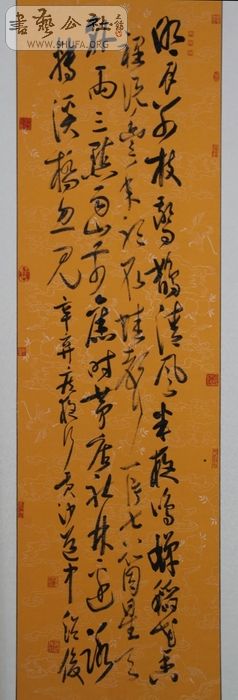 書藝公社
WWW.SHUFA.ORG.CN
明月别枝驚鵲清風半夜鳴蟬稻花香
裡説豐年听取蛙聲一片七八個星天
外兩三點雨山前舊時茅店社林邊路
轉溪橋忽見 辛弃疾夜行黄沙道中